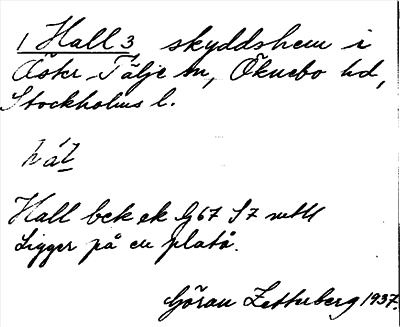 1 Hall 3 skyddshem i
Öster-Tälje sn, Öknebo hd,
Stockholms l.
hál
Hall bek ek bg 67 S7 vettl
Ligger på en platå.
Göran Zetterberg 1937.